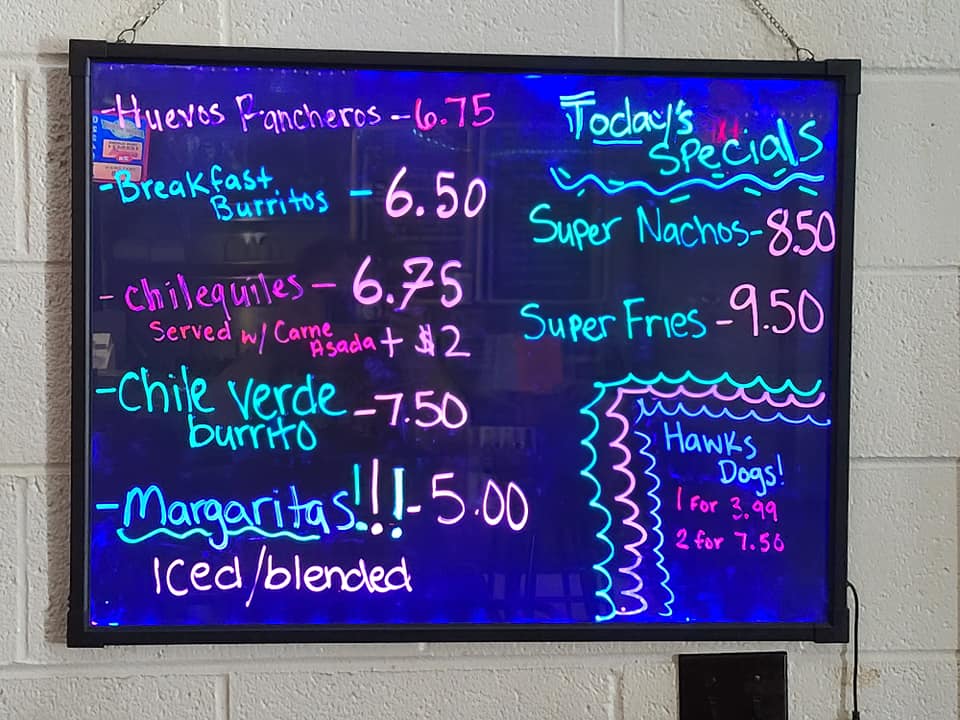 -Huevos Rancheros - 6.75
-Breakfast
Burritos - 6.50
- Chilequiles - 6.75
Served w/ Carne
Asada + $2
-Chile verde
burrito -7.50
-Margaritas!!! - 5.00
Iced/blended
Today's
Specials
Super Nachos-8.50
Super Fries -9.50
Hawks
Dogs!
1 For 3.99
2 for 7.50